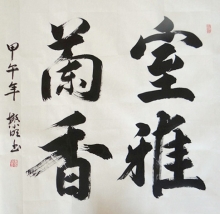 室雅
蘭香
甲午年